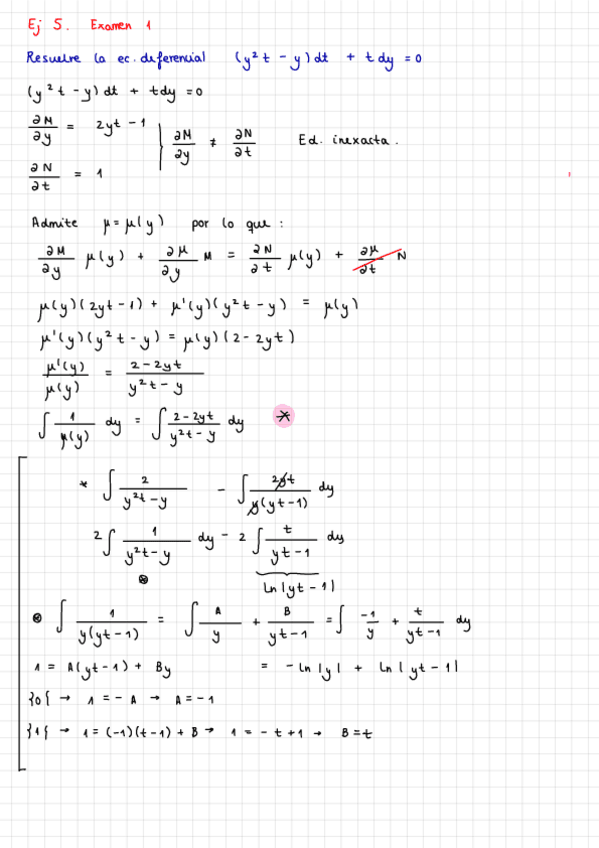 Ej 5. Examen 1
Resuelve la ec. diferencial (y²t - y)dt + t dy = 0
(y²t - y) dt + tdy = 0
∂M/∂y = 2yt - 1 | ∂M/∂y ≠ ∂N/∂t Ed. inexacta.
∂N/∂t = 1
Admite μ = μ(y) por lo que :
∂M/∂y μ(y) + ∂μ/∂y M = ∂N/∂t μ(y) + ∂μ/∂t N
μ(y)(2yt - 1) + μ'(y)(y²t - y) = μ(y)
μ'(y)(y²t - y) = μ(y)(2 - 2yt)
μ'(y)/μ(y) = (2 - 2yt)/(y²t - y)
∫ 1/μ(y) dy = ∫ (2 - 2yt)/(y²t - y) dy *
* ∫ 2/(y²t - y) - ∫ 2yt/(y(yt - 1)) dy
2 ∫ 1/(y²t - y) dy - 2 ∫ t/(yt - 1) dy
⊛ ln|yt - 1|
⊛ ∫ 1/(y(yt - 1)) = ∫ A/y + B/(yt - 1) = ∫ -1/y + t/(yt - 1) dy
1 = A(yt - 1) + By = - ln|y| + ln|yt - 1|
}0{ → 1 = - A → A = -1
}1{ → 1 = (-1)(t - 1) + B → 1 = - t + 1 → B = t